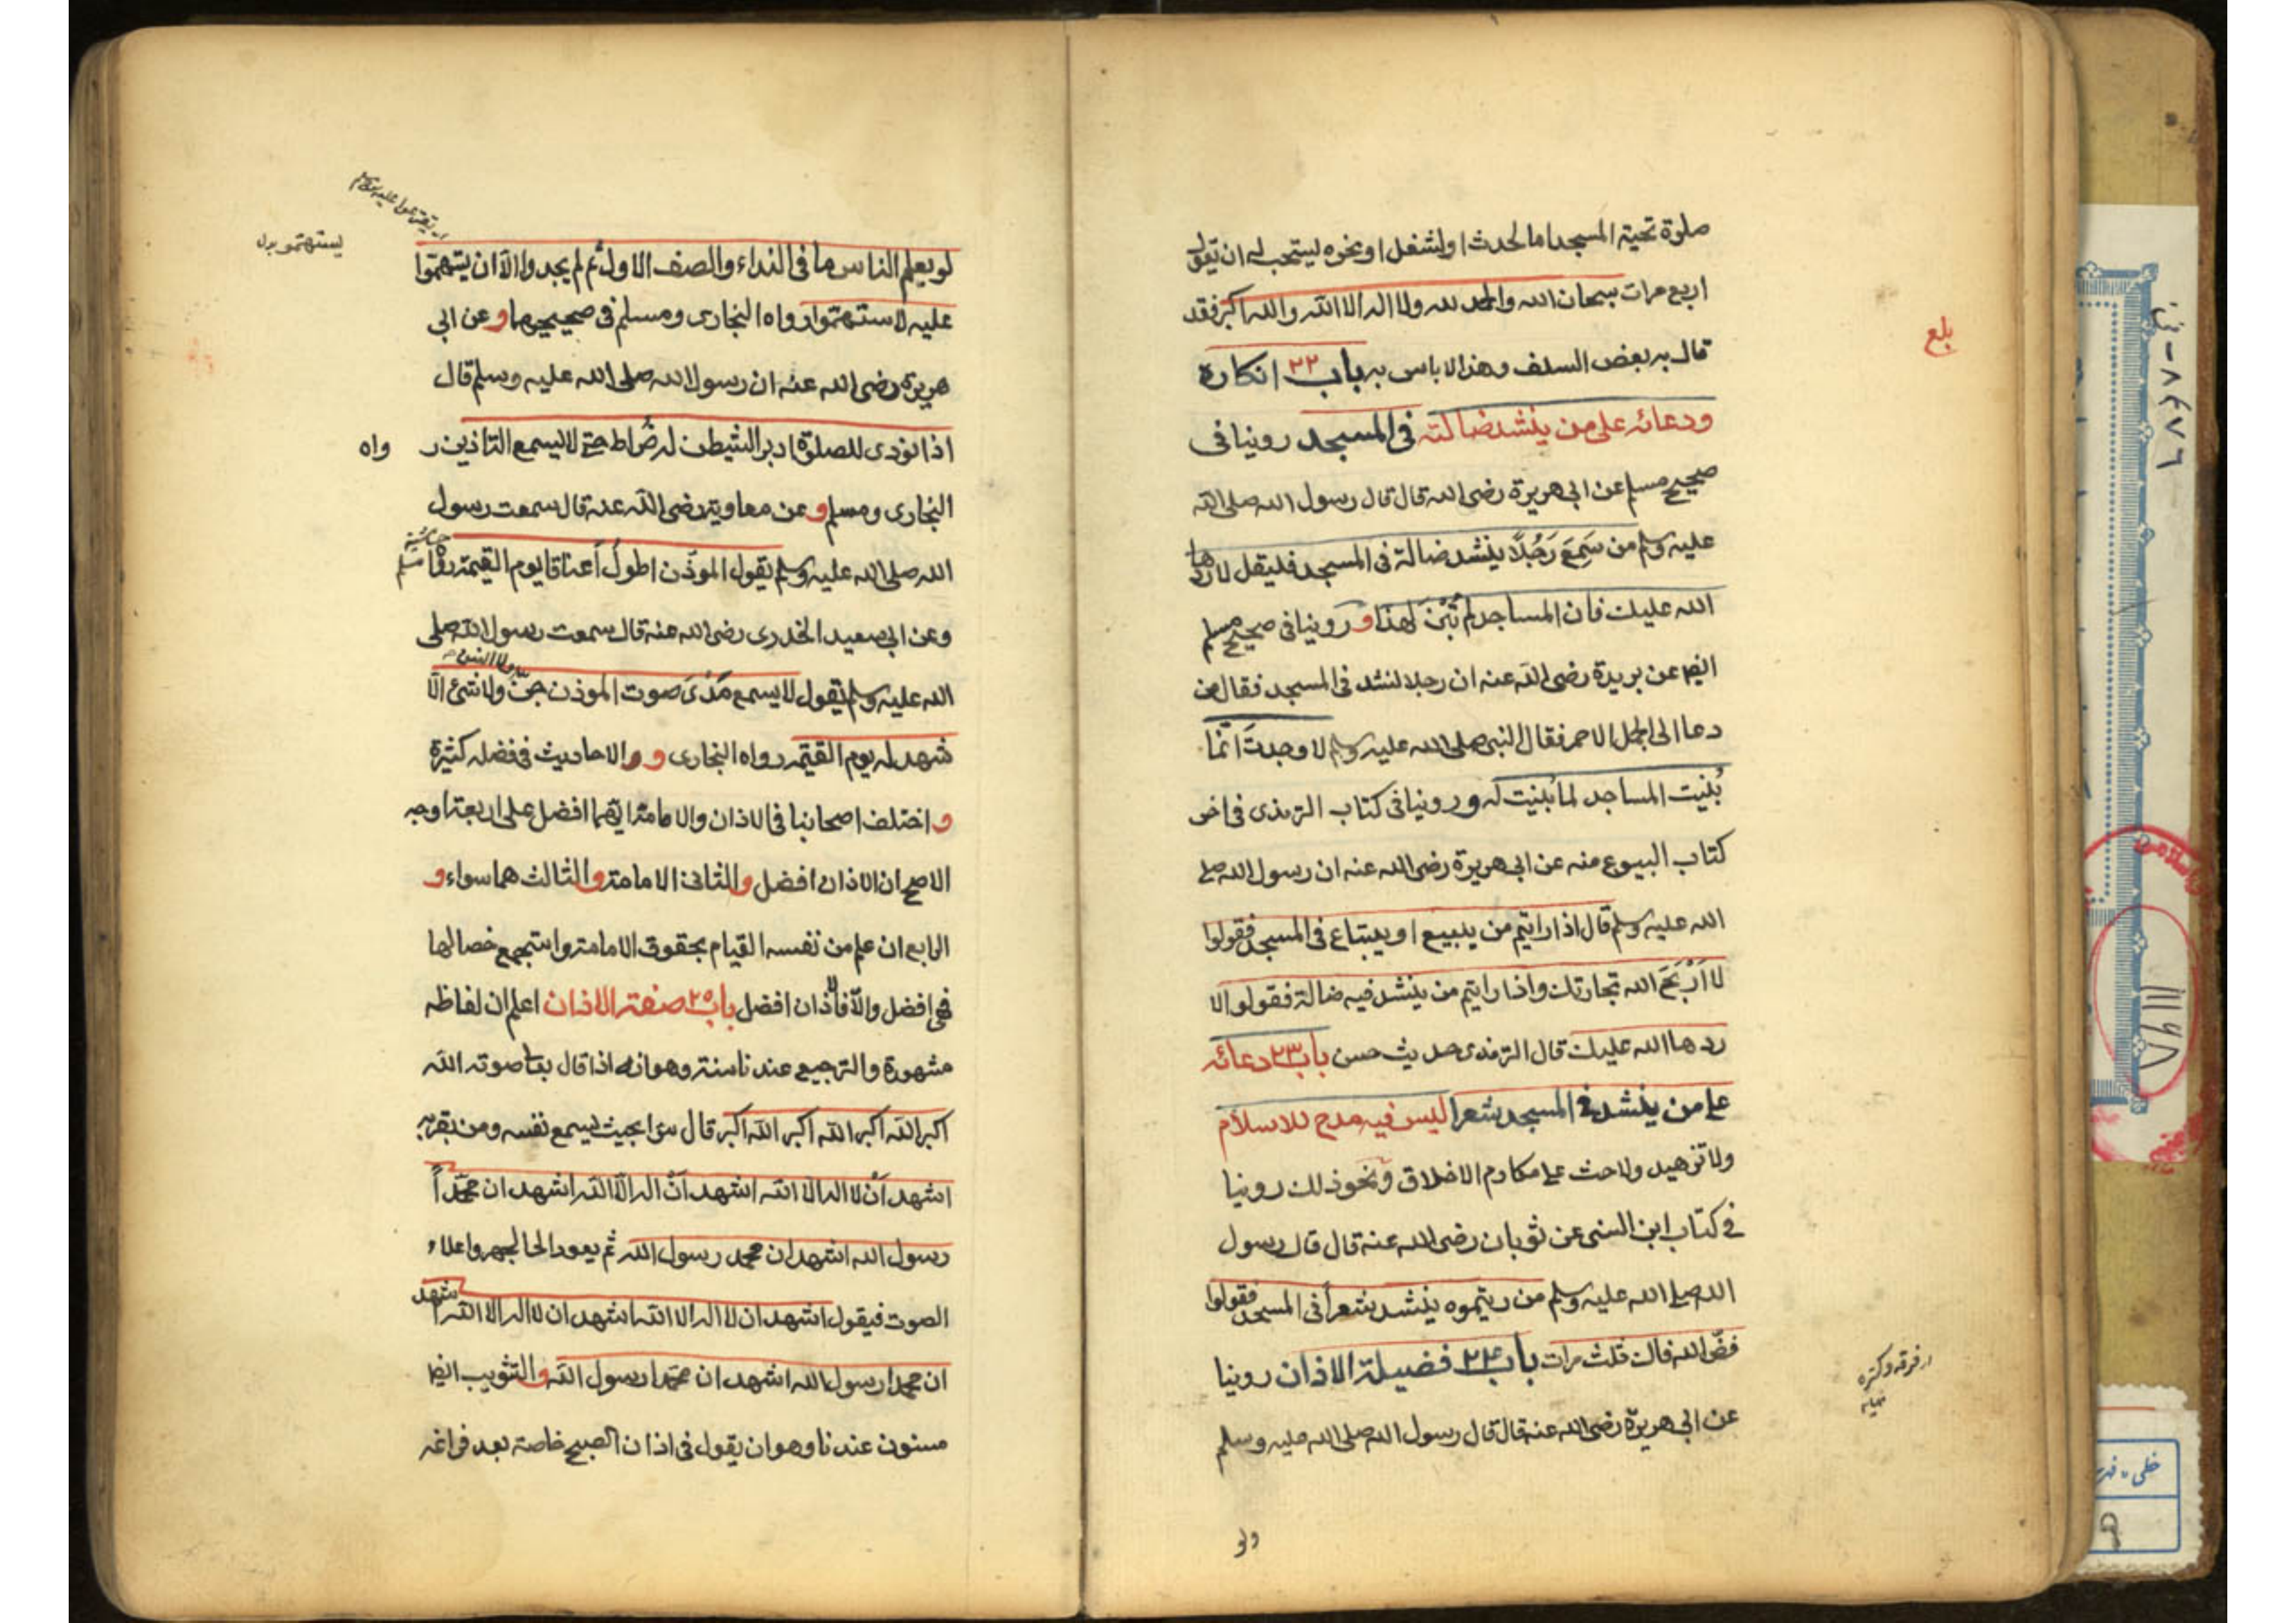 صلوة تحية المسجد اما لحدث او لشغل او نحوه ليستحب له ان يقول
اربع مرات سبحان الله والحمد لله ولا اله الا الله والله اكبر فقد
قال به بعض السلف وهذا لا باس به باب ٢٢ انكاره
ودعائه على من ينشد ضالته فى المسجد روينا فى
صحيح مسلم عن ابى هريرة رضى الله قال قال رسول الله صلى الله
عليه وسلم من سَمِعَ رَجُلًا ينشد ضالة فى المسجد فليقل لا ردها
الله عليك فان المساجد لم تُبْنَ لهذا و روينا فى صحيح مسلم
ايضا عن بريدة رضى الله عنه ان رجلا نشد فى المسجد فقال من
دعا الى الجمل الاحمر فقال النبى صلى الله عليه وسلم لا وجدتَ انّما
بُنيت المساجد لما بُنيت له و روينا فى كتاب الترمذى فى اخر
كتاب البيوع منه عن ابى هريرة رضى الله عنه ان رسول الله صلى
الله عليه وسلم قال اذا رايتم من يبيع او يبتاع فى المسجد فقولوا
لا اَرْبَحَ الله تجارتك واذا رايتم من ينشد فيه ضالة فقولوا لا
ردها الله عليك قال الترمذى حديث حسن باب ٢٣ دعائه
على من ينشد فى المسجد شعرا ليس فيه مدح للاسلام
ولا تزهيد ولا حث على مكارم الاخلاق ونحو ذلك روينا
فى كتاب ابن السنى عن ثوبان رضى الله عنه قال قال رسول
الله صلى الله عليه وسلم من ريتموه ينشد شعراً فى المسجد فقولوا
فضّ الله فاك ثلث مرات باب ٢٤ فضيلة الاذان روينا
عن ابى هريرة رضى الله عنه قال قال رسول الله صلى الله عليه وسلم
ولو
بلع
لو يعلم الناس ما فى النداء والصف الاول ثم لم يجدوا الا ان يستهموا
عليه لاستهتموا رواه البخارى ومسلم فى صحيحيهما و عن ابى
هريرة رضى الله عنه ان رسول الله صلى الله عليه وسلم قال
اذا نودى للصلوة ادبر الشيطن له ضُراط حتى لا يسمع التاذين ر واه
البخارى ومسلم و عن معاوية رضى الله عنه قال سمعت رسول
الله صلى الله عليه وسلم يقول الموذّن اطولُ اَعناقا يوم القيمة رواه مسلم
وعن ابى سعيد الخدرى رضى الله عنه قال سمعت رسول الله صلى
الله عليه وسلم يقول لا يسمع مَدْىَ صوت الموذن جنّ ولا شئ الّا
شهد له يوم القيمة رواه البخارى و والاحاديث فى فضله كثيرة
و اختلف اصحابنا فى الاذان والامامة ايهما افضل على اربعة اوجه
الاصح ان الاذان افضل والثانى الامامة والثالث هما سواء و
الرابع ان علم من نفسه القيام بحقوق الامامة واستجمع خصالها
فهى افضل والا فالاذان افضل باب ٢٥ صفة الاذان اعلم ان لفاظه
مشهورة والترجيع عندنا سنة وهو انه اذا قال بعا صوته الله
اكبر الله اكبر الله اكبر الله اكبر قال سرا بحيث يسمع نفسه ومن بقربه
اشهد اَنْ لا اله الا الله اشهد اَنْ اله الّا الله اشهد ان محمّداً
رسول الله اشهد ان محمد رسول الله ثم يعود الى الجهر واعلاء
الصوت فيقول اشهد ان لا اله الا الله اشهد ان لا اله الا الله اشهد
ان محمدا رسول الله اشهد ان محمّدا رسول الله والتثويب ايضا
مسنون عندنا وهو ان يقول فى اذان الصبح خاصة بعد فراغه
ولا انس
يستهتمو بدل